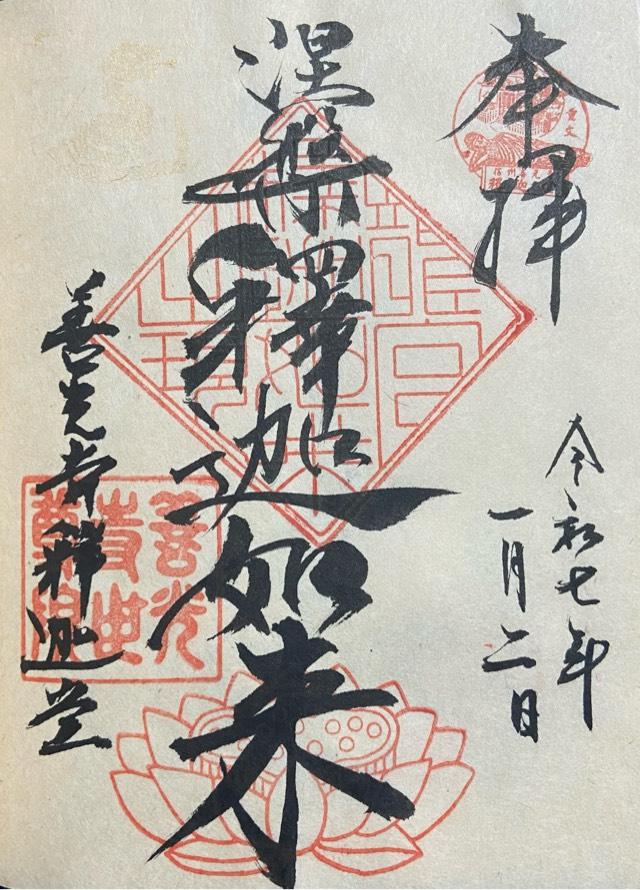 奉拝
重文
令和七年
一月二日
涅槃釋迦如来
善光寺釋迦堂